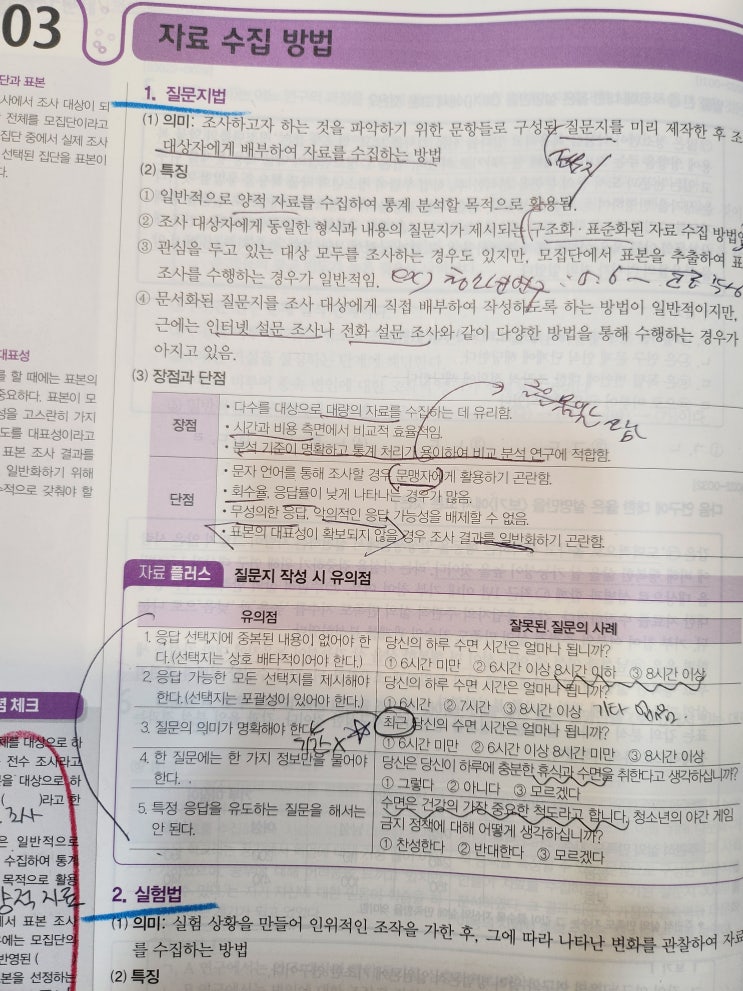 03
자료 수집 방법
단과 표본
사에서 조사 대상이 되
전체를 모집단이라고
집단 중에서 실제 조사
선택된 집단을 표본이
다.
1. 질문지법
(1) 의미: 조사하고자 하는 것을 파악하기 위한 문항들로 구성된 질문지를 미리 제작한 후 조
대상자에게 배부하여 자료를 수집하는 방법
(2) 특징
① 일반적으로 양적 자료를 수집하여 통계 분석할 목적으로 활용됨.
② 조사 대상자에게 동일한 형식과 내용의 질문지가 제시되는 구조화·표준화된 자료 수집 방법임
③ 관심을 두고 있는 대상 모두를 조사하는 경우도 있지만, 모집단에서 표본을 추출하여 표
조사를 수행하는 경우가 일반적임.
④ 문서화된 질문지를 조사 대상에게 직접 배부하여 작성하도록 하는 방법이 일반적이지만,
근에는 인터넷 설문 조사나 전화 설문 조사와 같이 다양한 방법을 통해 수행하는 경우가
아지고 있음.
대표성
를 할 때에는 표본의
중요하다. 표본이 모
성을 고스란히 가지
도를 대표성이라고
표본 조사 결과를
일반화하기 위해
수적으로 갖춰야 할
(3) 장점과 단점
장점
• 다수를 대상으로 대량의 자료를 수집하는 데 유리함.
• 시간과 비용 측면에서 비교적 효율적임.
• 분석 기준이 명확하고 통계 처리가 용이하여 비교 분석 연구에 적합함.
단점
• 문자 언어를 통해 조사할 경우 문맹자에게 활용하기 곤란함.
• 회수율, 응답률이 낮게 나타나는 경우가 많음.
• 무성의한 응답, 악의적인 응답 가능성을 배제할 수 없음.
• 표본의 대표성이 확보되지 않을 경우 조사 결과를 일반화하기 곤란함.
자료 플러스 질문지 작성 시 유의점
유의점 잘못된 질문의 사례
1. 응답 선택지에 중복된 내용이 없어야 한
다.(선택지는 상호 배타적이어야 한다.)
당신의 하루 수면 시간은 얼마나 됩니까?
① 6시간 미만 ② 6시간 이상 8시간 이하 ③ 8시간 이상
2. 응답 가능한 모든 선택지를 제시해야
한다.(선택지는 포괄성이 있어야 한다.)
당신의 하루 수면 시간은 얼마나 됩니까?
① 6시간 ② 7시간 ③ 8시간 이상 기타 없음.
3. 질문의 의미가 명확해야 한다.
기간 X
최근 당신의 수면 시간은 얼마나 됩니까?
① 6시간 미만 ② 6시간 이상 8시간 미만 ③ 8시간 이상
4. 한 질문에는 한 가지 정보만을 물어야
한다.
당신은 당신이 하루에 충분한 휴식과 수면을 취한다고 생각하십니까?
① 그렇다 ② 아니다 ③ 모르겠다
5. 특정 응답을 유도하는 질문을 해서는
안 된다.
수면은 건강의 가장 중요한 척도라고 합니다. 청소년의 야간 게임
금지 정책에 대해 어떻게 생각하십니까?
① 찬성한다 ② 반대한다 ③ 모르겠다
념 체크
체를 대상으로 하
전수 조사라고
을 대상으로 하
( )라고 한
조사
은 일반적으로
수집하여 통계
목적으로 활용
양적 자료
에서 표본 조사
우에는 모집단의
반영된 (
본을 선정하는
2. 실험법
(1) 의미: 실험 상황을 만들어 인위적인 조작을 가한 후, 그에 따라 나타난 변화를 관찰하여 자료
를 수집하는 방법
(2) 특징